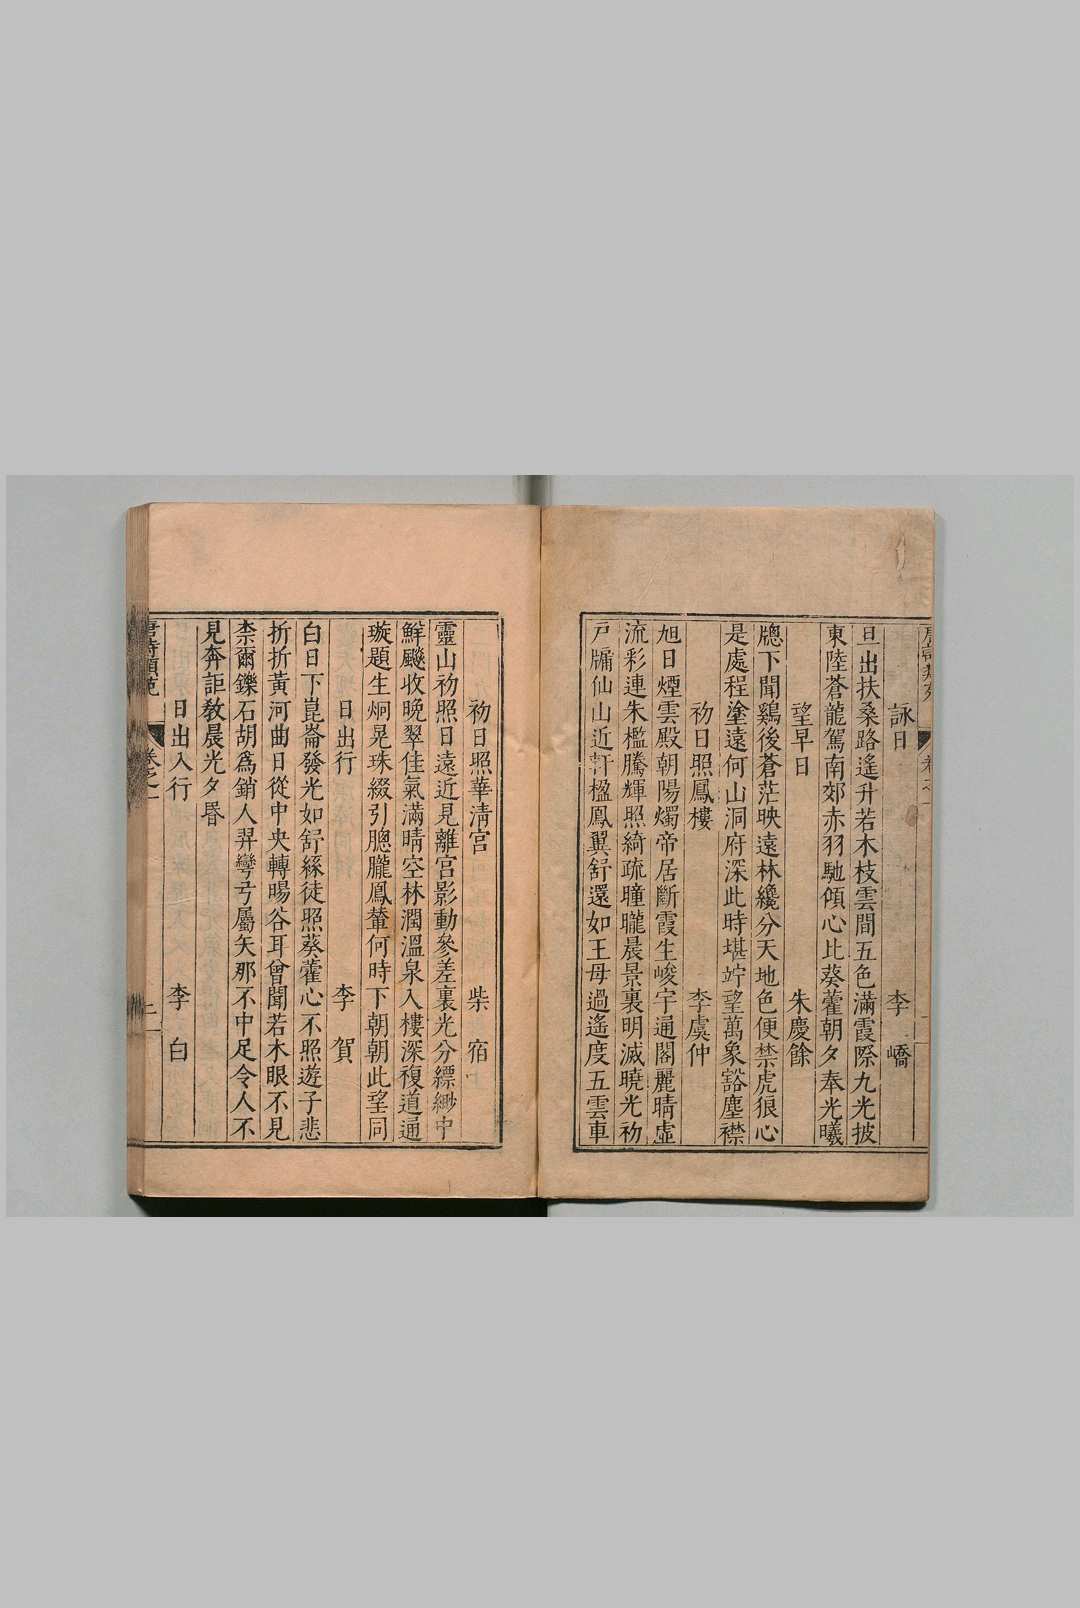 詠日 李嶠
旦出扶桑路遙升若木枝雲間五色滿霞際九光披
東陸蒼龍駕南郊赤羽馳傾心比葵藿朝夕奉光曦
望早日 朱慶餘
牎下聞鷄後蒼茫映遠林纔分天地色便禁虎狼心
是處程塗遠何山洞府深此時堪竚望萬象豁塵襟
初日照鳳樓 李虞仲
旭日煙雲殿朝陽燭帝居斷霞生峻宇通閣麗晴虛
流彩連朱檻騰輝照綺疏曈曨晨景裏明滅曉光初
戶牖仙山近軒楹鳳翼舒還如王母過遙度五雲車
初日照華淸宮 柴宿
靈山初照日遠近見離宮影動參差裏光分縹緲中
鮮飈收晚翠佳氣滿晴空林潤溫泉入樓深複道通
璇題生炯晃珠綴引朧朧鳳輦何時下朝朝此望同
日出行 李賀
白日下崑崙發光如舒絲徒照葵藿心不照遊子悲
折折黃河曲日從中央轉暘谷耳曾聞若木眼不見
柰爾鑠石胡爲銷人羿彎弓屬矢那不中足令人不
見奔詎敎晨光夕昬
日出入行 李白
唐詩類苑 卷之一